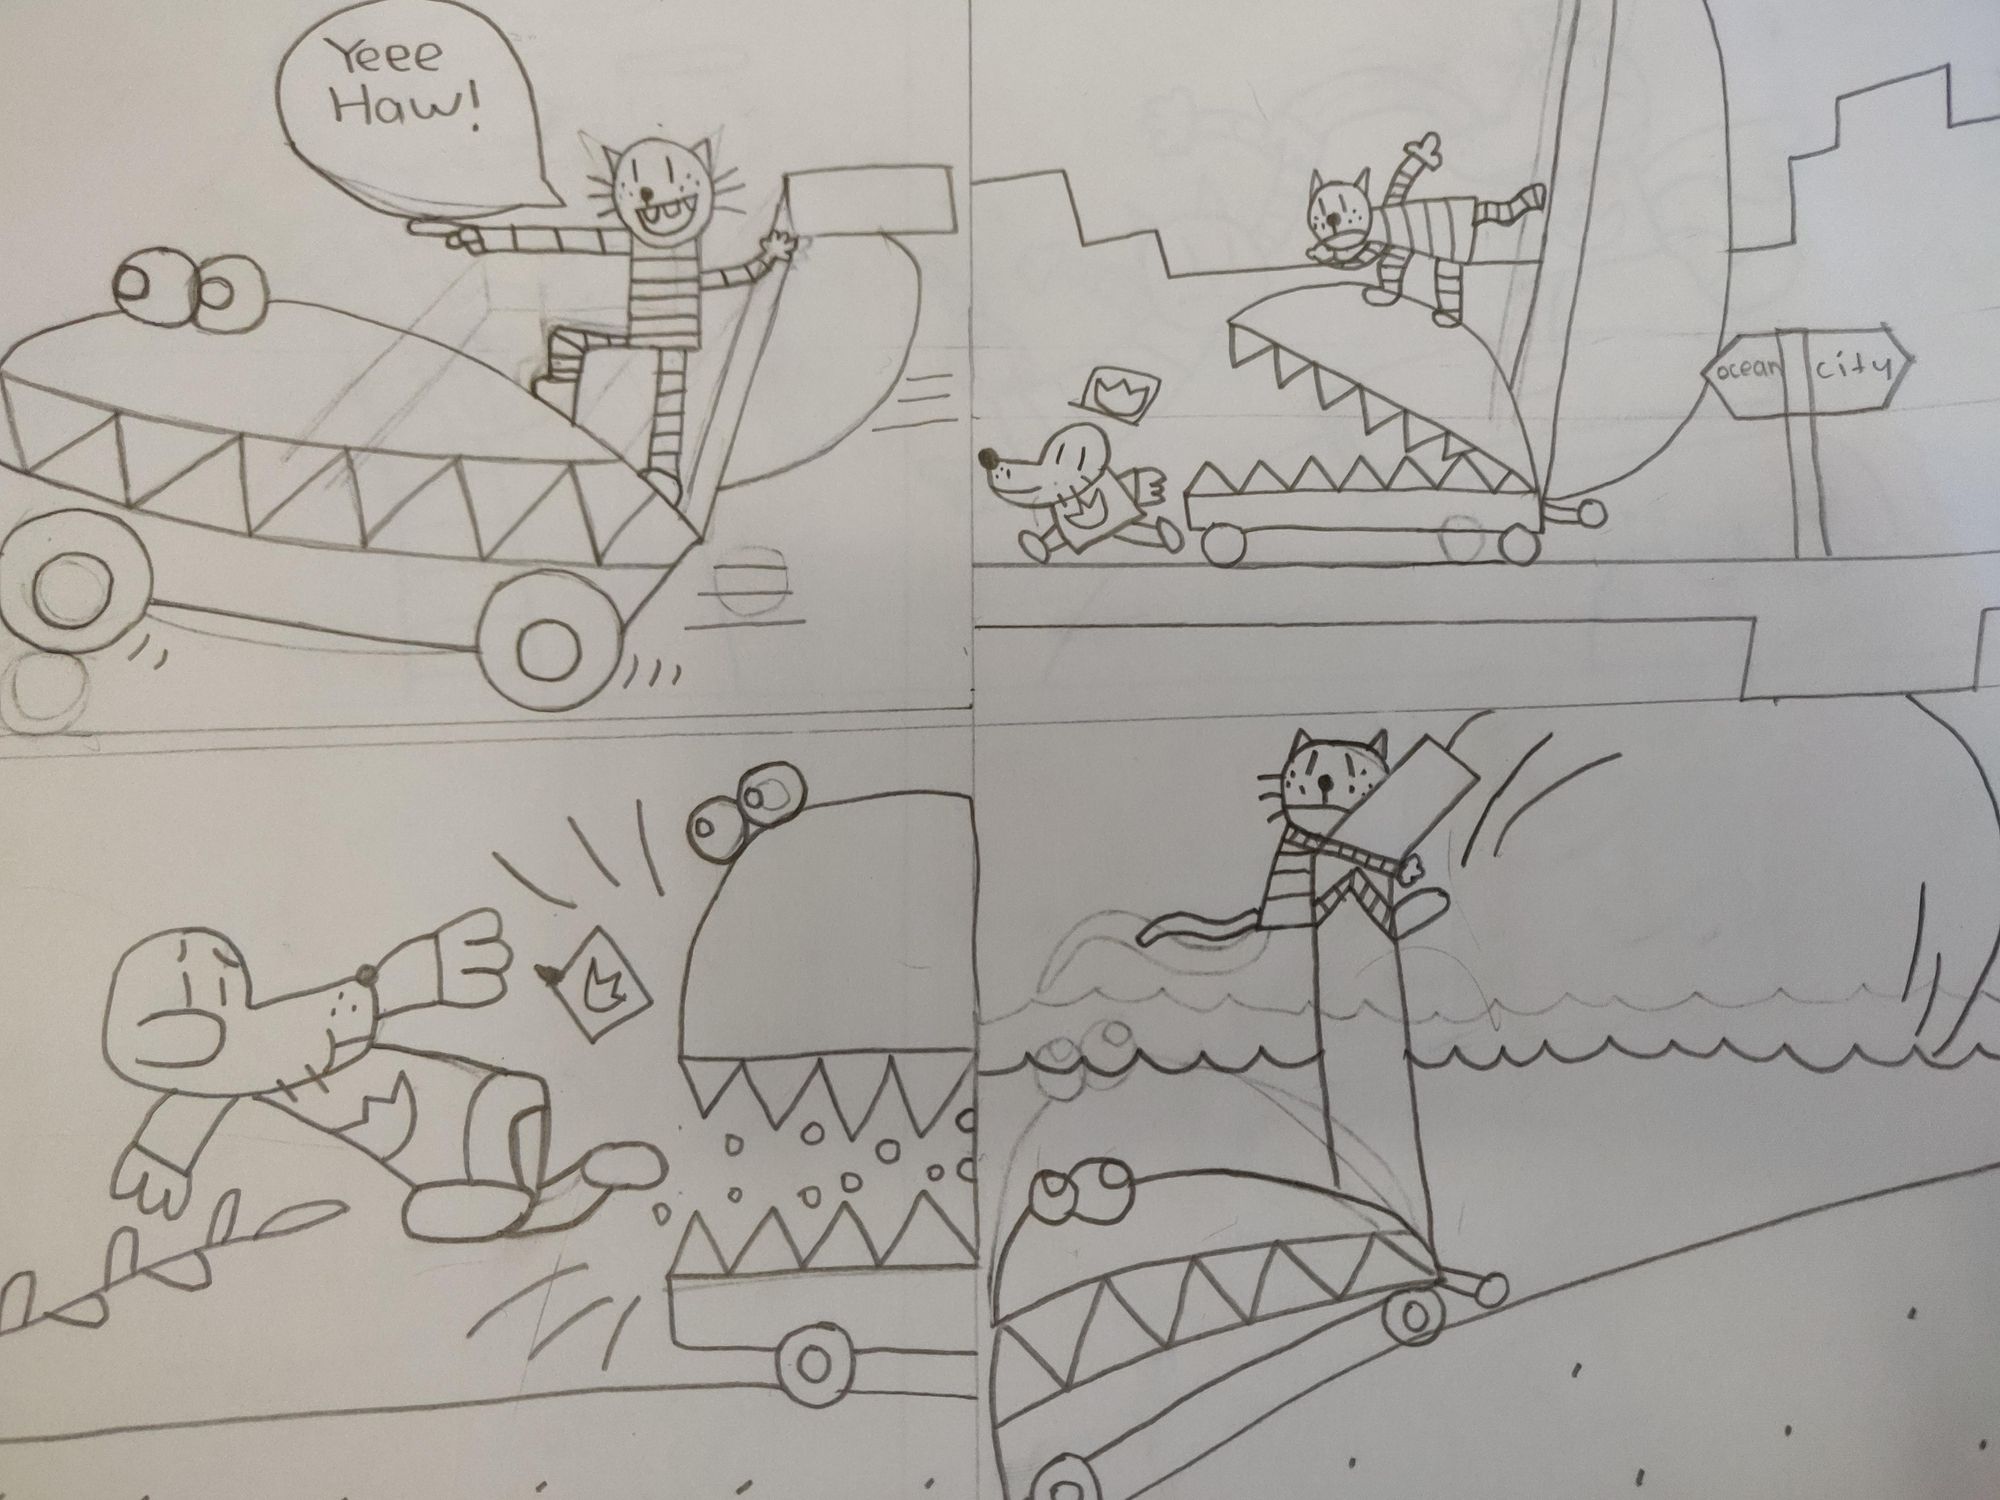 Yeee
Haw!
ocean city